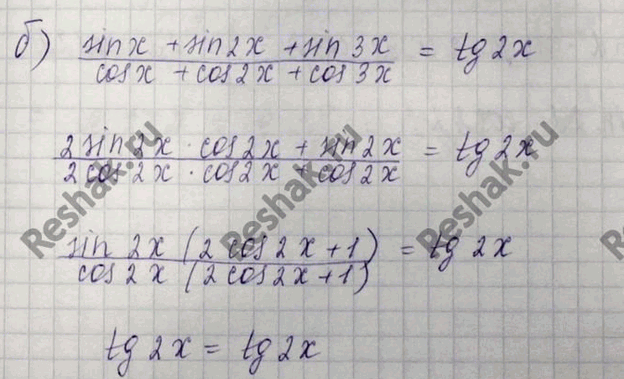 б) (sin x + sin 2x + sin 3x) / (cos x + cos 2x + cos 3x) = tg 2x
(2 sin 2x · cos 2x + sin 2x) / (2 cos 2x · cos 2x + cos 2x) = tg 2x
(sin 2x (2 cos 2x + 1)) / (cos 2x (2 cos 2x + 1)) = tg 2x
tg 2x = tg 2x
Reshak.ru
Reshak.ru
Reshak.ru